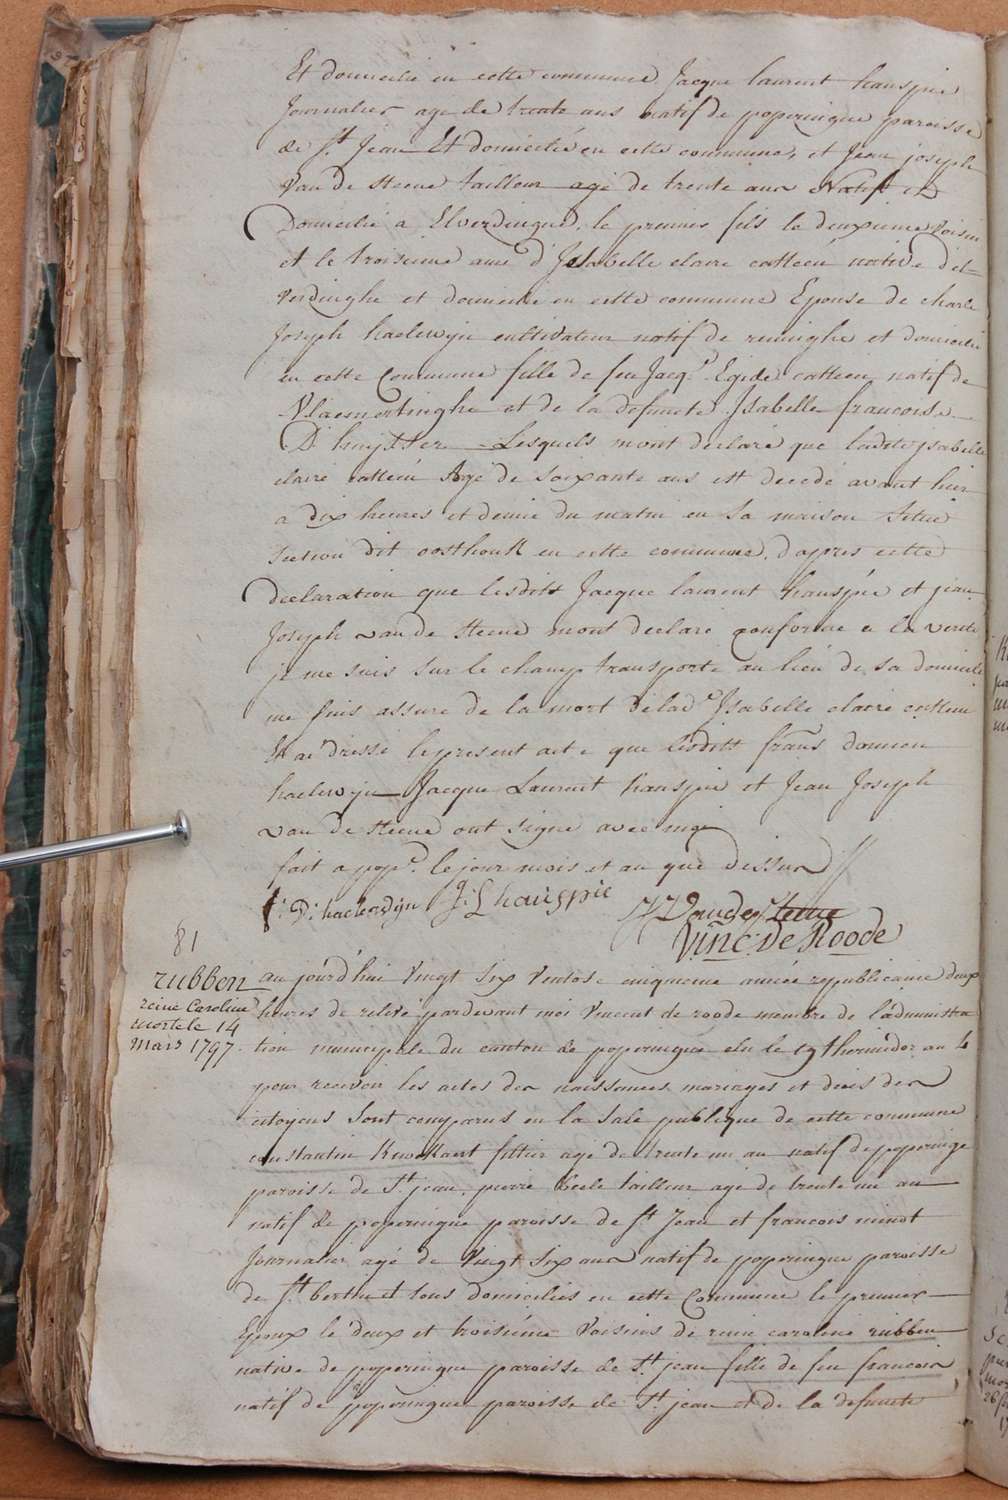 Et domicilié en cette commune Jacque laurent hauspie
Journalier age de trente ans natif de poperingue paroisse
de St Jean Et domicilié en cette commune, et Jean joseph
Van de Steene tailleur agé de trente ans Natif et
Domicilié a Elverdingue, le premier fils le deuxieme Voisin
et le troisieme ami d'Isabelle claire catteeu native d'el-
verdinghe et domicilié en cette commune Epouse de charle
Joseph haelewijn cultivateur natif de reninghe et domicilié
en cette Commune fille de feu Jacqs. Egide catteeu natif de
Vlaemertinghe et de la defuncte Isabelle francoise
D'huijtter Lesquels m'ont declaré que ladite isabelle
claire catteeu Agé de soixante ans est decedé avant hier
a dix heures et demie du matin en sa maison Situé
Section dit oosthouk en cette commune, d'apres cette
declaration que lesdits Jacque laurent hauspie et jean
Joseph van de Steene m'ont declaré conforme a la verité
je me suis sur le champ transporté au lieu de sa domicile
me suis assuré de la mort de lade Isabelle claire catteeu
Et ai dressé le present acte que lesdits frans domien
haelewijn Jacque Laurent hauspie et Jean Joseph
van de Steene ont signé avec moi
fait a pope. le jour mois et an que dessus
f: D: haelewijn J: L hauspie
J J Vande Steene
Vinc: De Roode
81
rubben
reine Caroline
morte le 14
Mars 1797.
au jourd'hui Vingt Six Ventose cinquieme année republicaine deux
heures de relevé pardevant moi Vincent de roode membre de l'administra
tion municipale du canton de poperingue elu le 29 thermidor an 4
pour recevoir les actes des naissances mariages et deces des
citoyens sont comparus en la sale publique de cette commune
constantin Kewelaert fittier agé de trente un an natif de poperinge
paroisse de St jean, pierre boele tailleur agé de trente un an
natif de poperingue paroisse de St Jean et francois minot
Journalier agé de Vingt Six ans natif de poperingue paroisse
de St bertin et tous domiciliés en cette Commune le premier
Epoux le deux et troisiéme Voisins de reine caroline rubben
native de poperingue paroisse de St jean fille de feu francois
natif de poperingue paroisse de St jean et de la defuncte